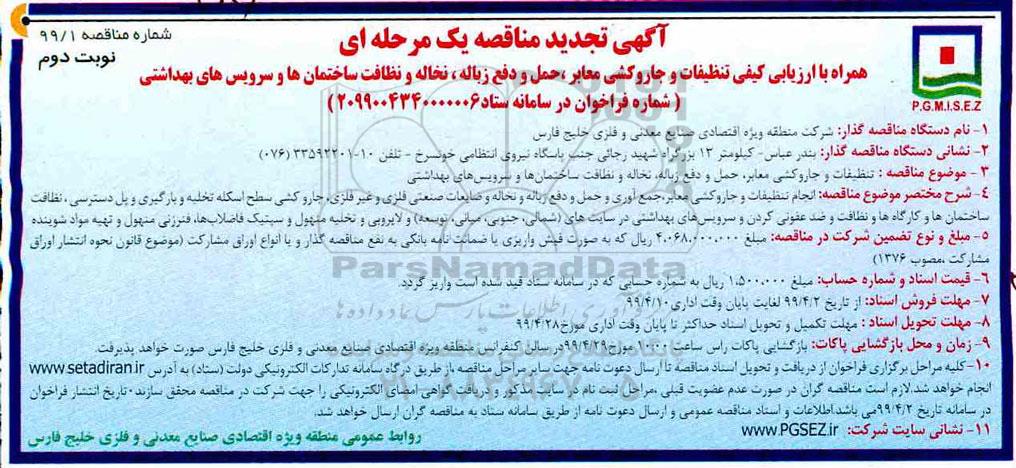 آگهی تجدید مناقصه یک مرحله ای
شماره مناقصه ۹۹/۱
نوبت دوم
همراه با ارزیابی کیفی تنظیفات و جاروکشی معابر ،حمل و دفع زباله ، نخاله و نظافت ساختمان ها و سرویس های بهداشتی
( شماره فراخوان در سامانه ستاد۲۰۹۹۰۰۴۳۴۰۰۰۰۰۰۶ )
P.G.M.I.S.E.Z
۱- نام دستگاه مناقصه گذار: شرکت منطقه ویژه اقتصادی صنایع معدنی و فلزی خلیج فارس
۲- نشانی دستگاه مناقصه گذار: بندر عباس- کیلومتر ۱۳ بزرگراه شهید رجائی جنب پاسگاه نیروی انتظامی خونسرخ - تلفن ۱۰-۳۳۵۹۲۲۰۱ (۰۷۶)
۳ - موضوع مناقصه : تنظیفات و جاروکشی معابر، حمل و دفع زباله، نخاله و نظافت ساختمان‌ها و سرویس‌های بهداشتی
۴- شرح مختصر موضوع مناقصه: انجام تنظیفات و جاروکشی معابر،جمع آوری و حمل و دفع زباله و نخاله و ضایعات صنعتی فلزی و غیر فلزی، جارو کشی سطح اسکله تخلیه و بارگیری و پل دسترسی ، نظافت
ساختمان ها و کارگاه ها و نظافت و ضد عفونی کردن و سرویس‌های بهداشتی در سایت های (شمالی،جنوبی، میانی، توسعه) و لایروبی و تخلیه منهول و سپتیک فاضلاب‌ها، فنرزنی منهول و تهیه مواد شوینده
۵- مبلغ و نوع تضمین شرکت در مناقصه: مبلغ ۴،۰۶۸،۰۰۰،۰۰۰ ریال که به صورت فیش واریزی یا ضمانت نامه بانکی به نفع مناقصه گذار و یا انواع اوراق مشارکت (موضوع قانون نحوه انتشار اوراق
مشارکت ،مصوب ۱۳۷۶)
ParsNamadData
۶- قیمت اسناد و شماره حساب: مبلغ ۱،۵۰۰،۰۰۰ ریال به شماره حسابی که در سامانه ستاد قید شده است واریز گردد.
۷- مهلت فروش اسناد: از تاریخ ۹۹/۴/۲ لغایت پایان وقت اداری۹۹/۴/۱۰
۸- مهلت تحویل اسناد : مهلت تکمیل و تحویل اسناد حداکثر تا پایان وقت اداری مورخ۹۹/۴/۲۸
۹- زمان و محل بازگشایی پاکات: بازگشایی پاکات راس ساعت ۱۰۰۰ مورخ۹۹/۴/۲۹در سالن کنفرانس منطقه ویژه اقتصادی صنایع معدنی و فلزی خلیج فارس صورت خواهد پذیرفت.
۱۰-کلیه مراحل برگزاری فراخوان از دریافت و تحویل اسناد مناقصه تا ارسال دعوت نامه جهت سایر مراحل مناقصه ،از طریق درگاه سامانه تدارکات الکترونیکی دولت (ستاد) به آدرس www.setadiran.ir
انجام خواهد شد.لازم است مناقصه گران در صورت عدم عضویت قبلی ،مراحل ثبت نام در سایت مذکور و دریافت گواهی امضای الکترونیکی را جهت شرکت در مناقصه محقق سازند.تاریخ انتشار فراخوان
در سامانه تاریخ ۹۹/۴/۲می باشد.اطلاعات و اسناد مناقصه عمومی و ارسال دعوت نامه از طریق سامانه ستاد به مناقصه گران ارسال خواهد شد.
۱۱- نشانی سایت شرکت: www.PGSEZ.ir
روابط عمومی منطقه ویژه اقتصادی صنایع معدنی و فلزی خلیج فارس